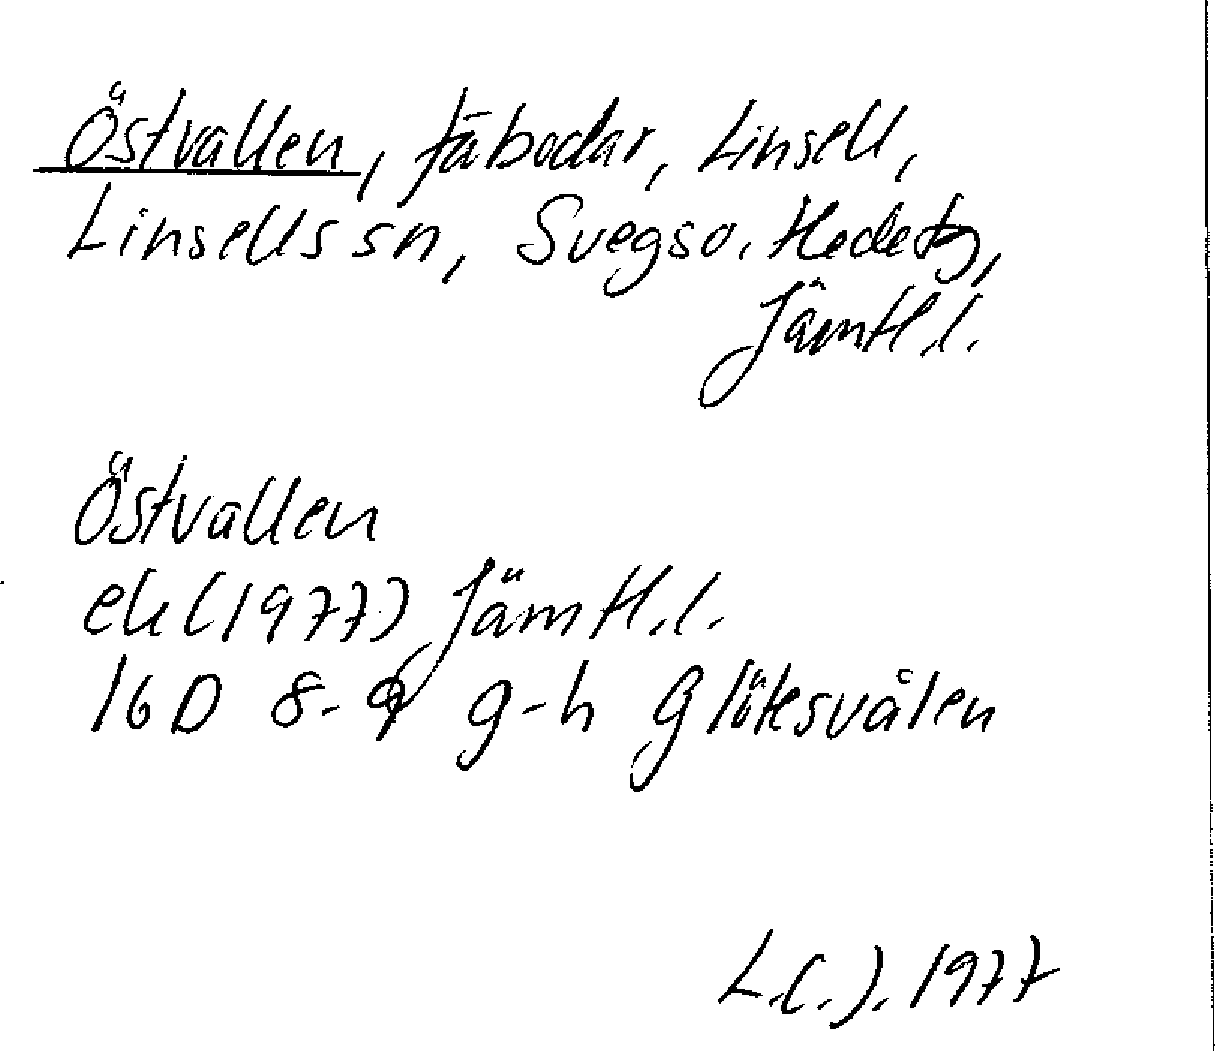 Östvallen, fäbodar, Linsell,
Linsells sn, Svegs o. Hedetg,
Jämtl l.
Östvallen
ek (1977) Jämtl. l.
16D 8-9 g-h Glötesvålen
1977